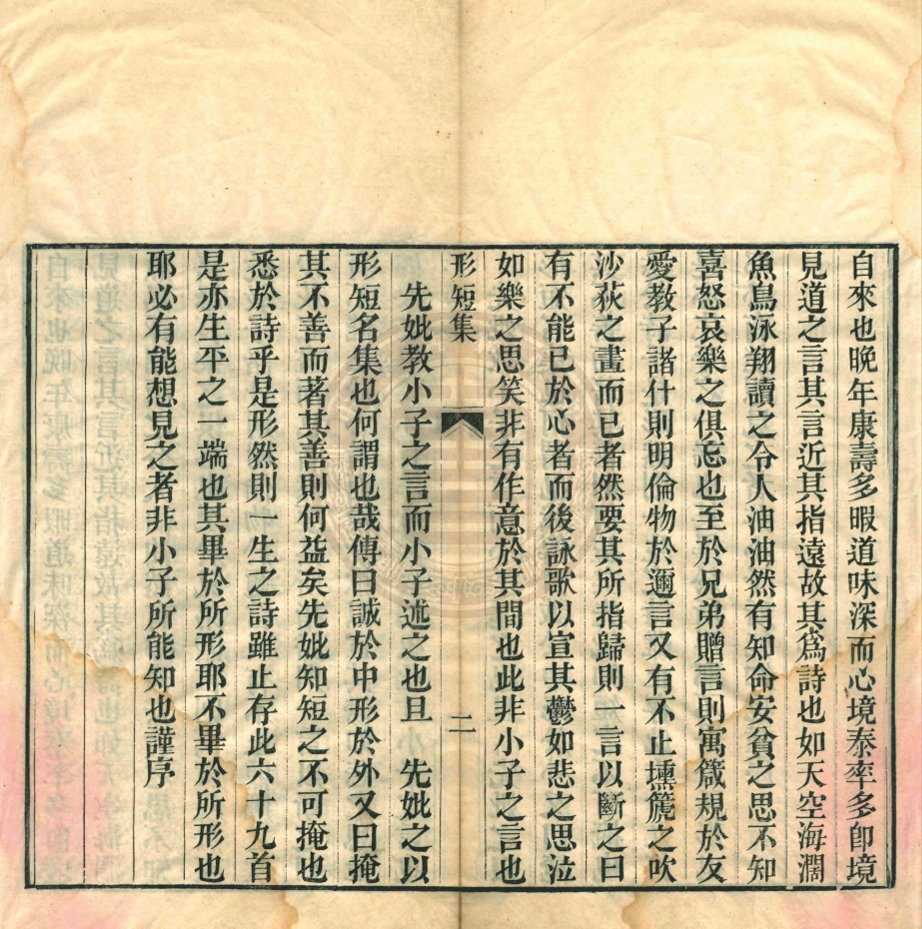 自來也晚年康壽多暇道味深而心境泰率多卽境
見道之言其言近其指遠故其爲詩也如天空海濶
魚鳥泳翔讀之令人油油然有知命安貧之思不知
喜怒哀樂之俱忘也至於兄弟贈言則寓箴規於友
愛教子諸什則明倫物於邇言又有不止壎篪之吹
沙荻之畫而已者然要其所指歸則一言以斷之曰
有不能已於心者而後詠歌以宣其鬱如悲之思泣
如樂之思笑非有作意於其間也此非小子之言也
形短集
二
先妣教小子之言而小子述之也且　先妣之以
形短名集也何謂也哉傳曰誠於中形於外又曰掩
其不善而著其善則何益矣先妣知短之不可掩也
悉於詩乎是形然則一生之詩雖止存此六十九首
是亦生平之一端也其畢於所形耶不畢於所形也
耶必有能想見之者非小子所能知也謹序